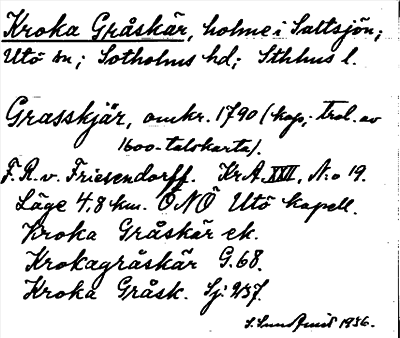 Kroka Gråskär, holme i Saltsjön;
Utö sn; Sotholms hd; Sthlms l.
Grasskjär, omkr. 1790 (kop. trol. av
1600-talskarta).
F. R. v. Friesendorff. Kr A. XXII, N:o 19.
Läge 4,8 km. ÖNÖ Utö kapell.
Kroka Gråskär ek.
Krokagråskär G. 68.
Kroka Gråsk. Sj:
1936.